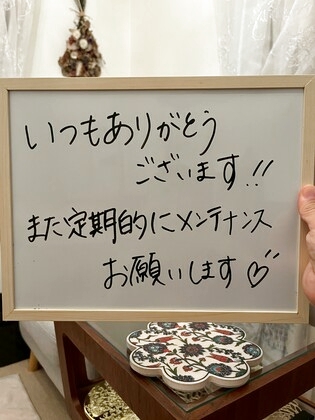 いつもありがとう
ございます!!
また定期的にメンテナンス
お願いします♡